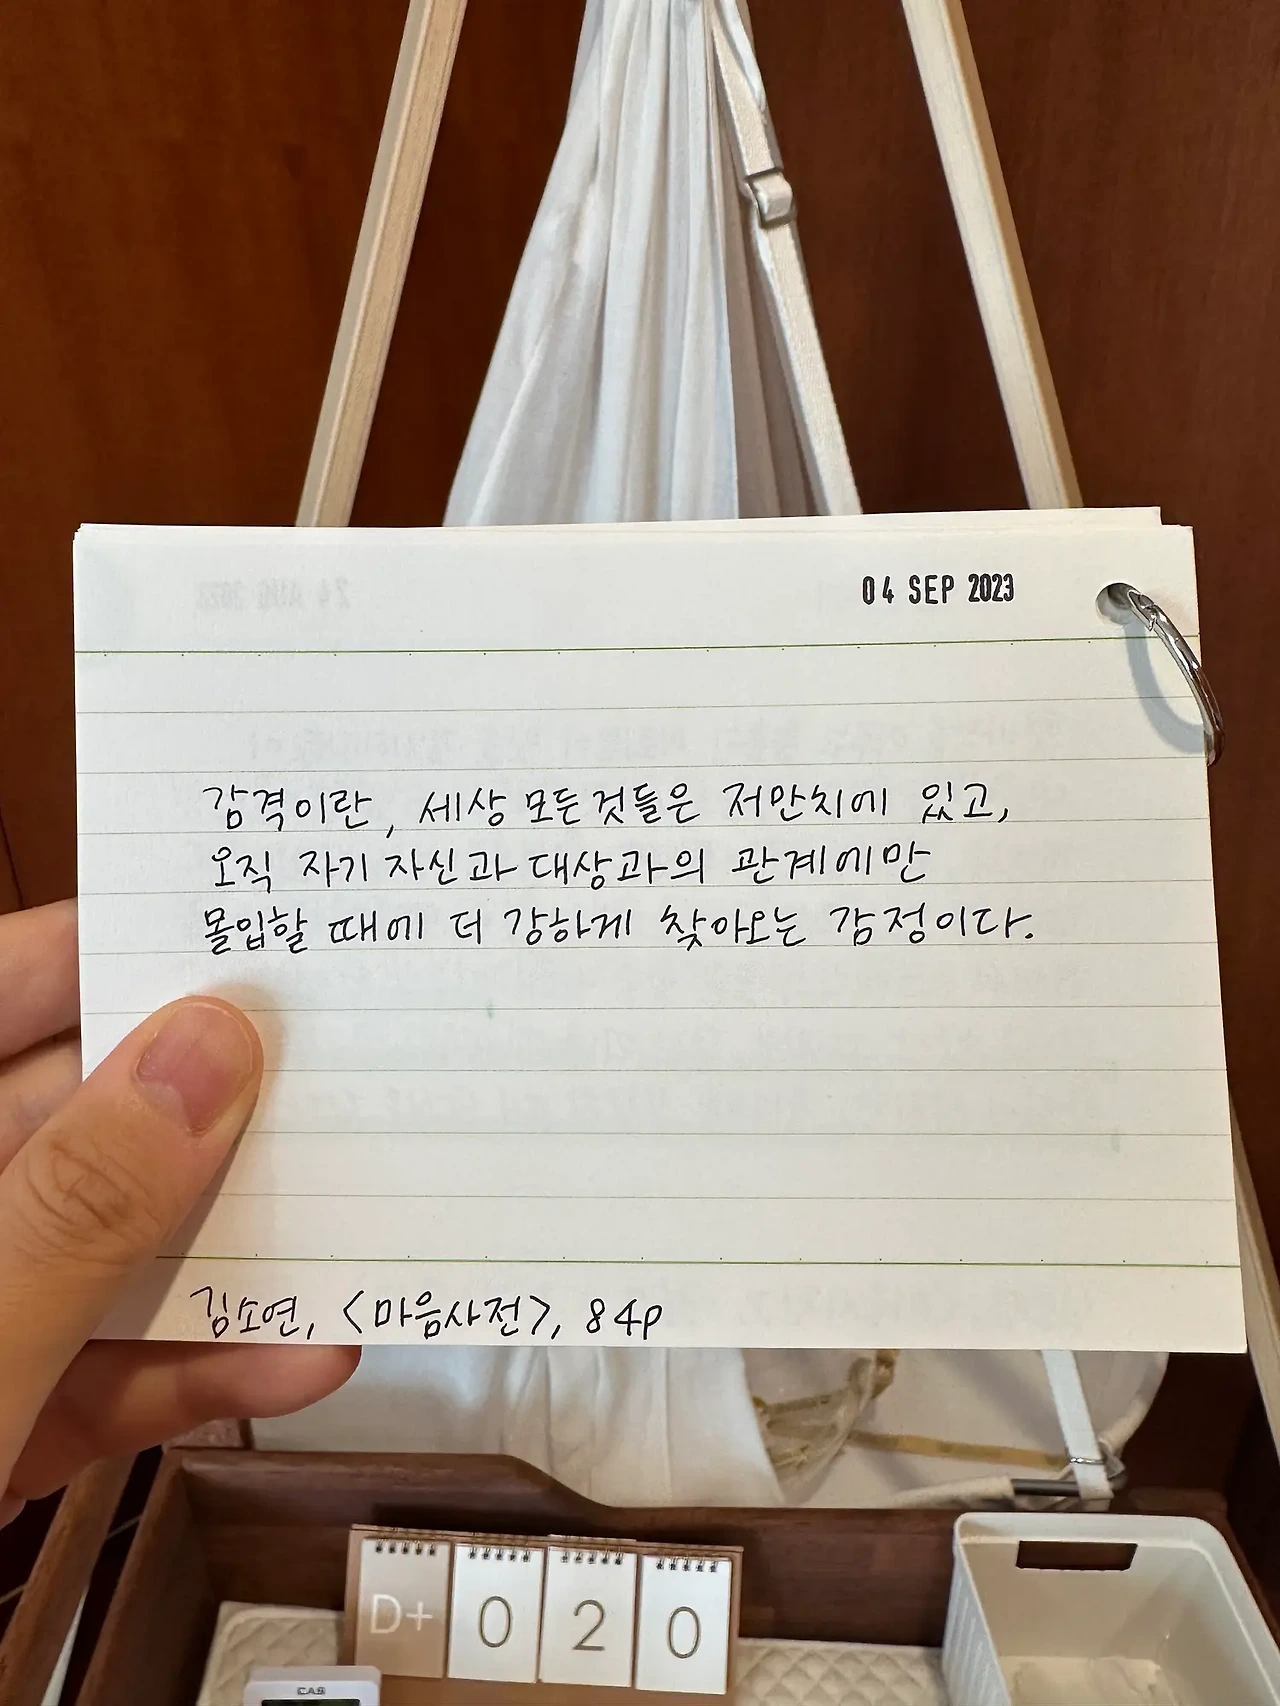 04 SEP 2023
감격이란, 세상 모든것들은 저만치에 있고,
오직 자기 자신과 대상과의 관계에만
몰입할 때에 더 강하게 찾아오는 감정이다.
김소연, <마음사전>, 84p
D+ 0 2 0
CAS